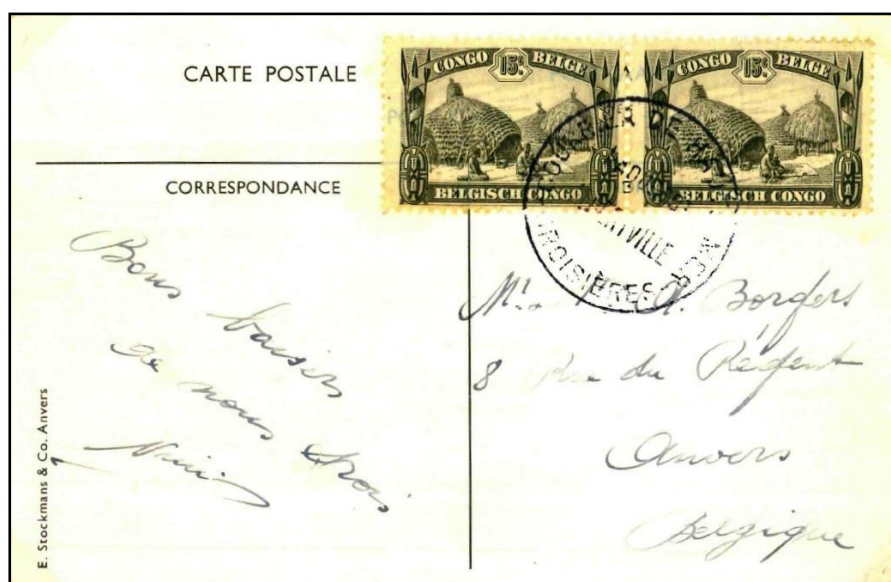 CARTE POSTALE
CONGO BELGE
15c.
BELGISCH CONGO
CONGO BELGE
15c.
BELGISCH CONGO
COURRIER DE HAUTE MER
CROISIÈRES
CORRESPONDANCE
Bons baisers
de nous trois
Nini
A. Borgers
8 Rue du Régent
Anvers
Belgique
E. Stockmans & Co. Anvers